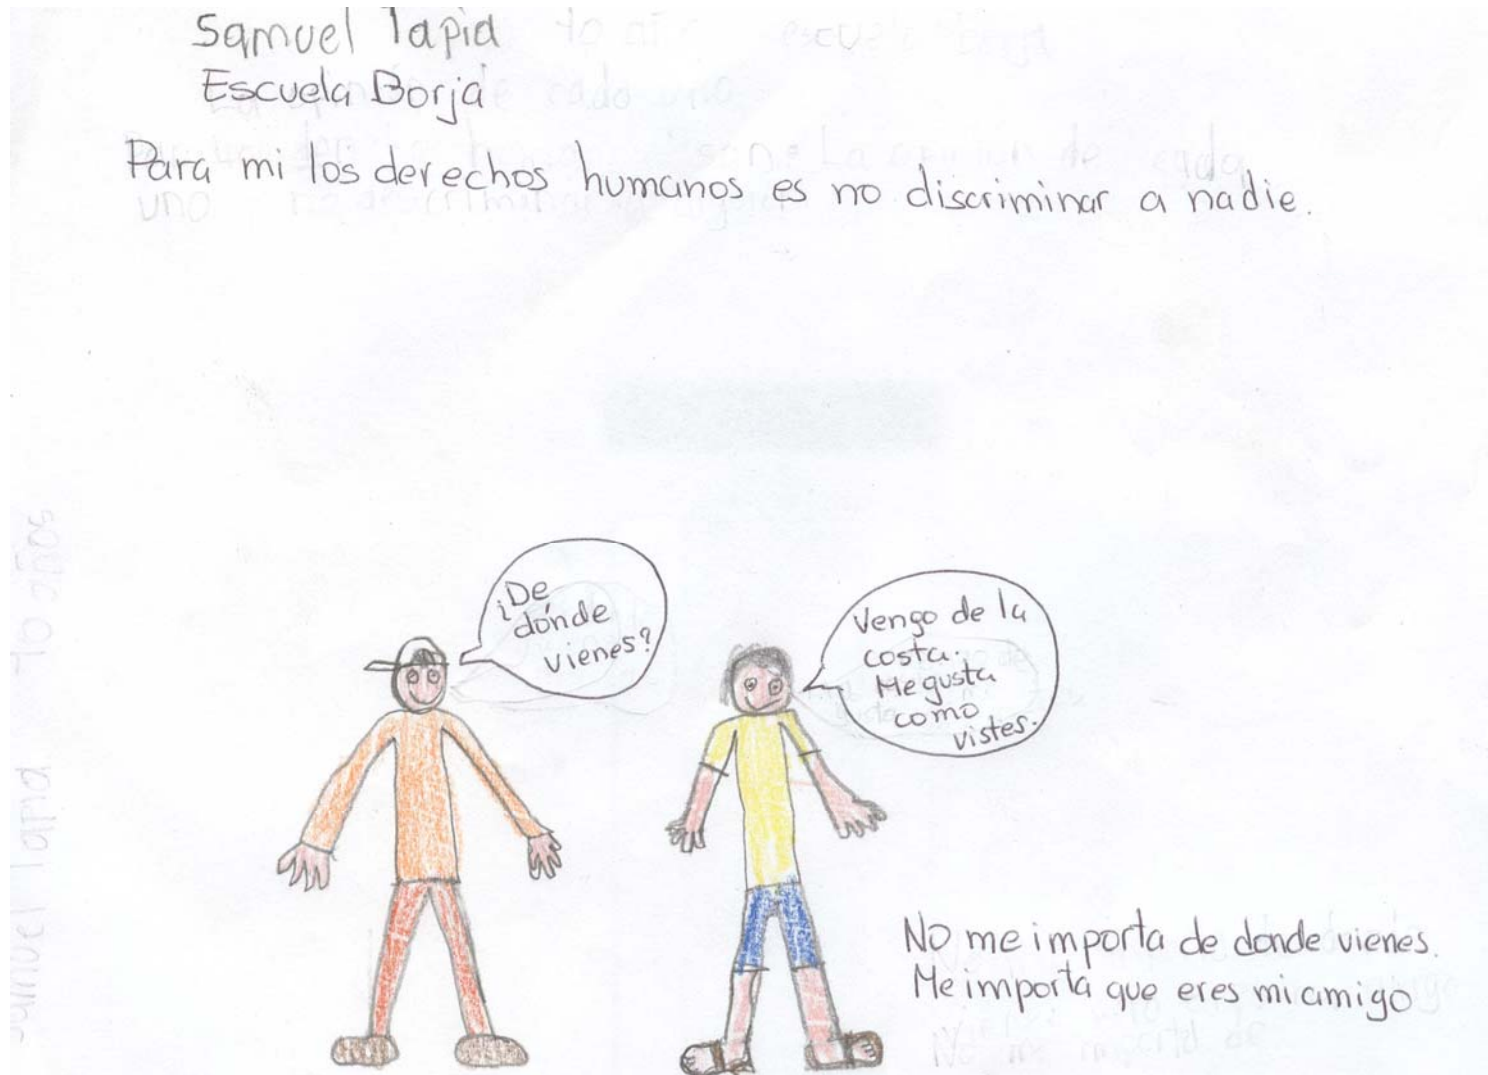 Samuel Tapia
Escuela Borja
Para mi los derechos humanos es no discriminar a nadie.
¿De
dónde
vienes?
Vengo de la
costa.
Me gusta
como
vistes.
No me importa de donde vienes.
Me importa que eres mi amigo
Samuel Tapia 10 años